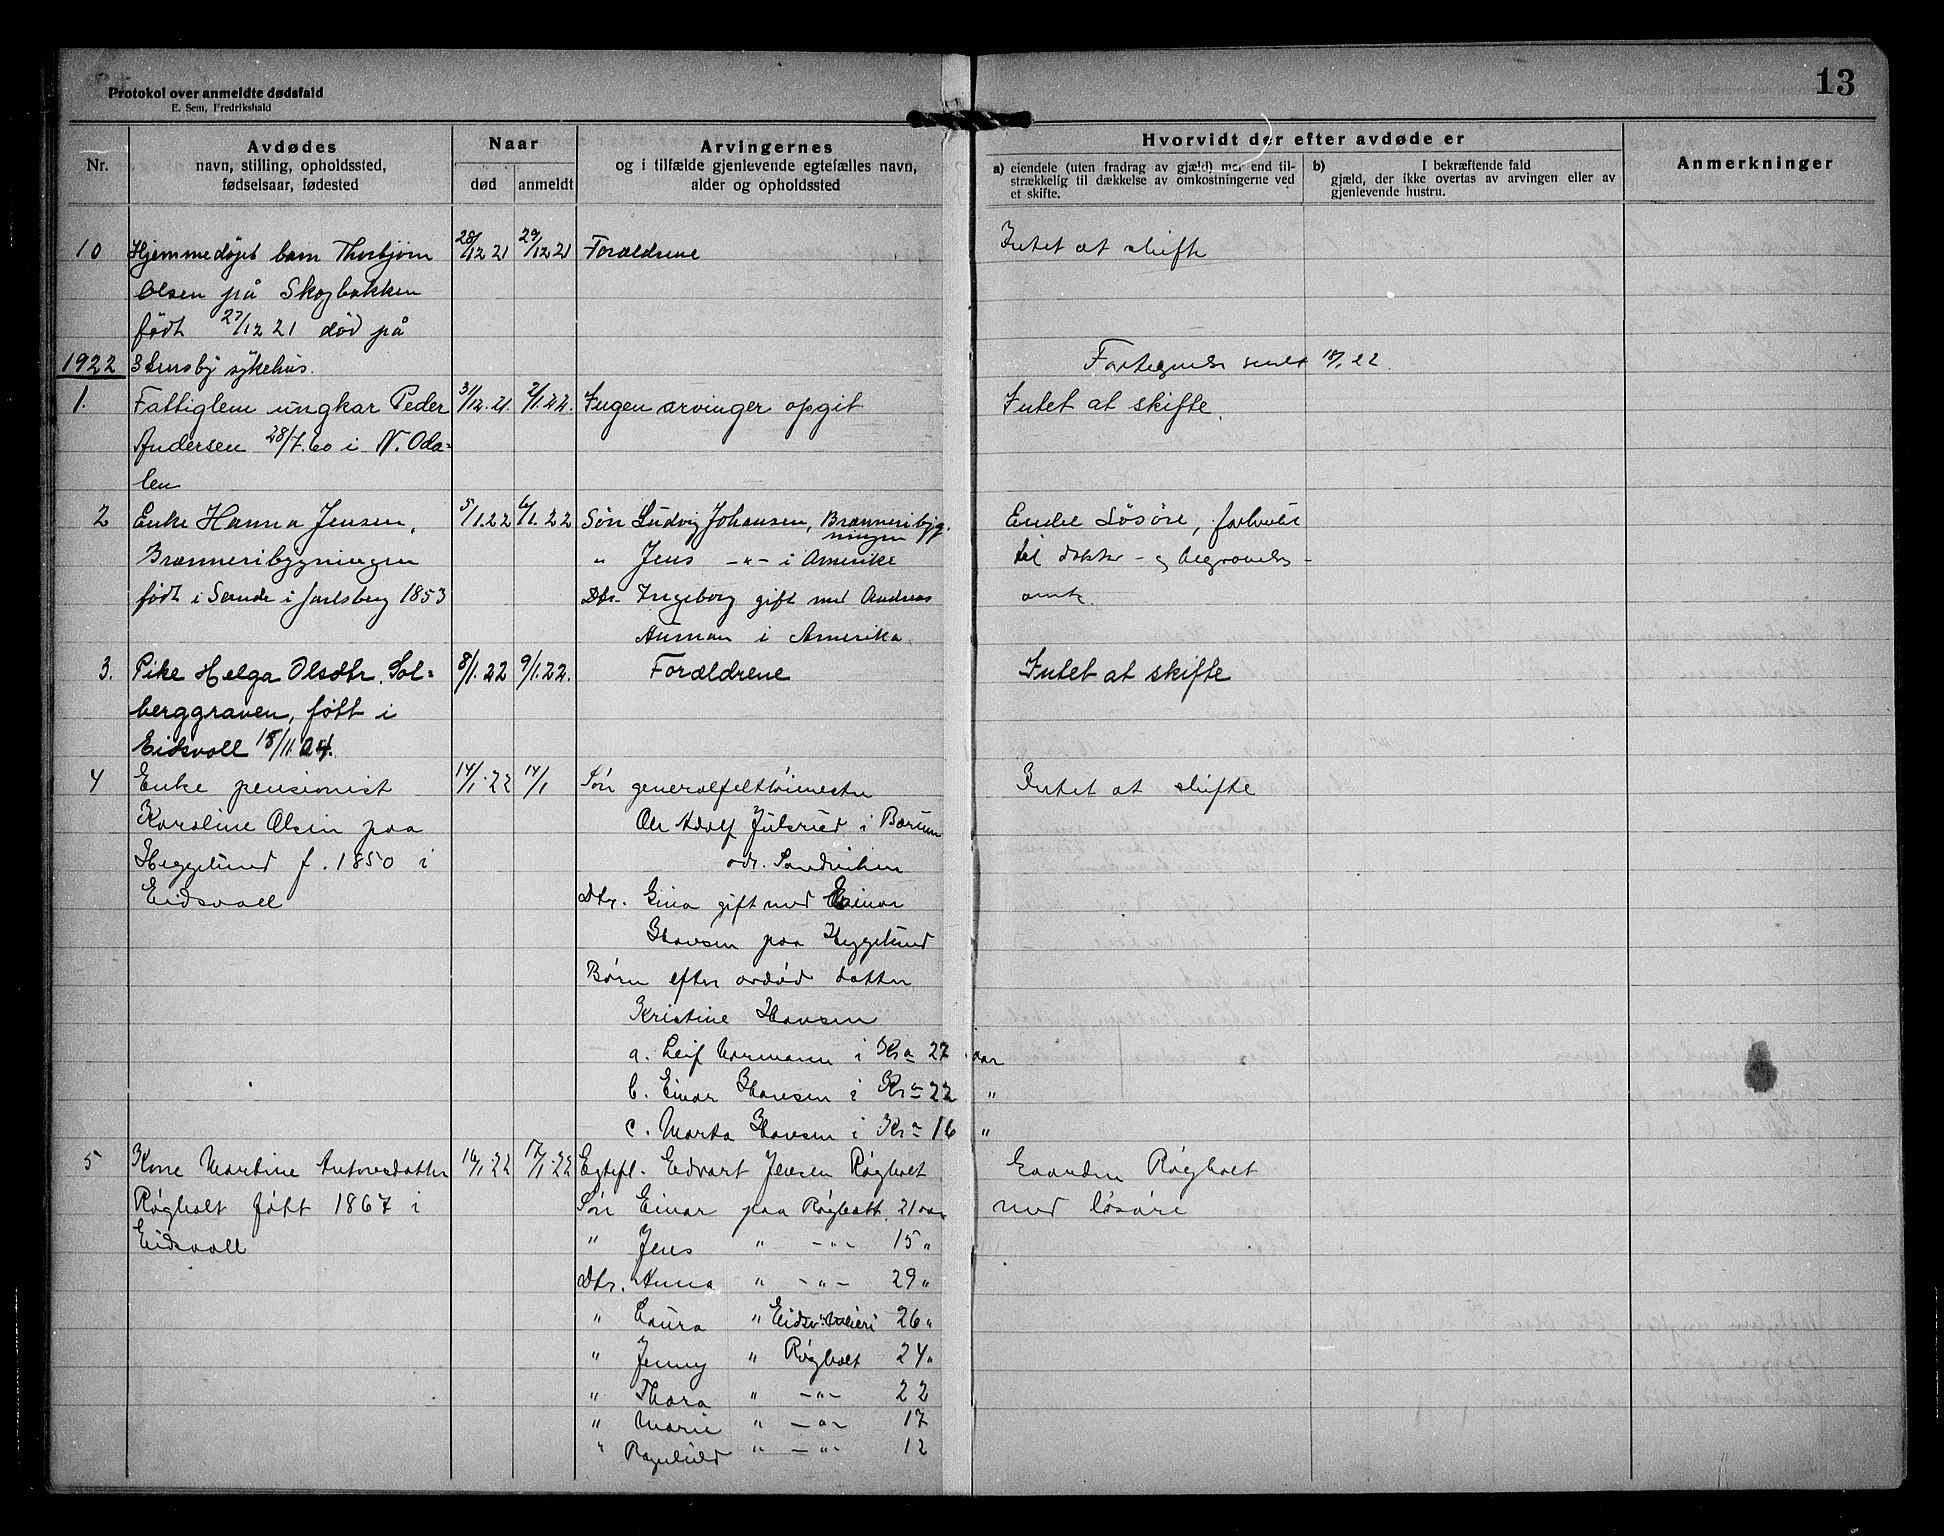 13
Protokol over anmeldte dødsfald
E. Sem, Fredrikshald
Nr.
Avdødes
navn, stilling, opholdssted,
fødselsaar, fødested
Naar
død
anmeldt
Arvingernes
og i tilfælde gjenlevende egtefælles navn,
alder og opholdssted
Hvorvidt der efter avdøde er
a) eiendele (uten fradrag av gjæld) mer end til-
strækkelig til dækkelse av omkostningerne ved
et skifte.
b) I bekræftende fald
gjæld, der ikke overtas av arvingen eller av
gjenlevende hustru.
Anmerkninger
10 Hjemmedøpt barn Thorbjørn 28/12 21 29/12 21 Forældrene Intet at skifte
Olsen på Skogbakken
født 27/12 21 død på
1922 Stensby sykehus. Fortegnelse sendt 18/1 22.
1. Fattiglem ungkar Peder 31/12.21. 2/1.22. Ingen arvinger opgit Intet at skifte.
Andersen 28/7.60 i N. Oda-
len
2 Enke Hanna Jensen, 5/1.22 6/1.22 Søn Ludvig Johansen, Brænneribyg- Endel Løsøre,
ningen
Brænneribygningen " Jens -"- i Amerika til dokter- og begravelses-
født i Sande i Jarlsberg 1853 Dtr. Ingeborg gift med Andreas omk.
Auman i Amerika.
3. Pike Helga Olsdtr. Sol- 8/1.22 9/1.22. Forældrene Intet at skifte
berggraven, født i
Eidsvoll 18/11.04.
4 Enke pensionist 14/1.22 14/1 Søn generalfelttøimester Intet at skifte
Karoline Olsen paa Ole Adolf Julsrud i Bærum
Heggelund f. 1850 i adr. Sandviken
Eidsvoll Dtr. Gina gift med Einar
Hansen paa Heggelund
Børn efter avdød datter
Kristine Hansen
a. Leif Normann i Kra 27 aar
b. Einar Hansen i Kra 22 "
c. Marta Hansen i Kra 16 "
5 Kone Martine Antonesdatter 16/1.22 17/1.22 Egtefl. Edvart Jensen Røgholt Gaarden Røgholt
Røgholt født 1867 i Søn Einar paa Røgholt 21 aar med løsøre
Eidsvoll " Jens " -"- 15 "
Dtr. Anna " -"- 29 "
" Laura " Eidsv. Meieri 26 "
" Jenny " Røgholt 24 "
" Thora " -"- 22
" Marie " -"- 17
" Ragnhild " -"- 12